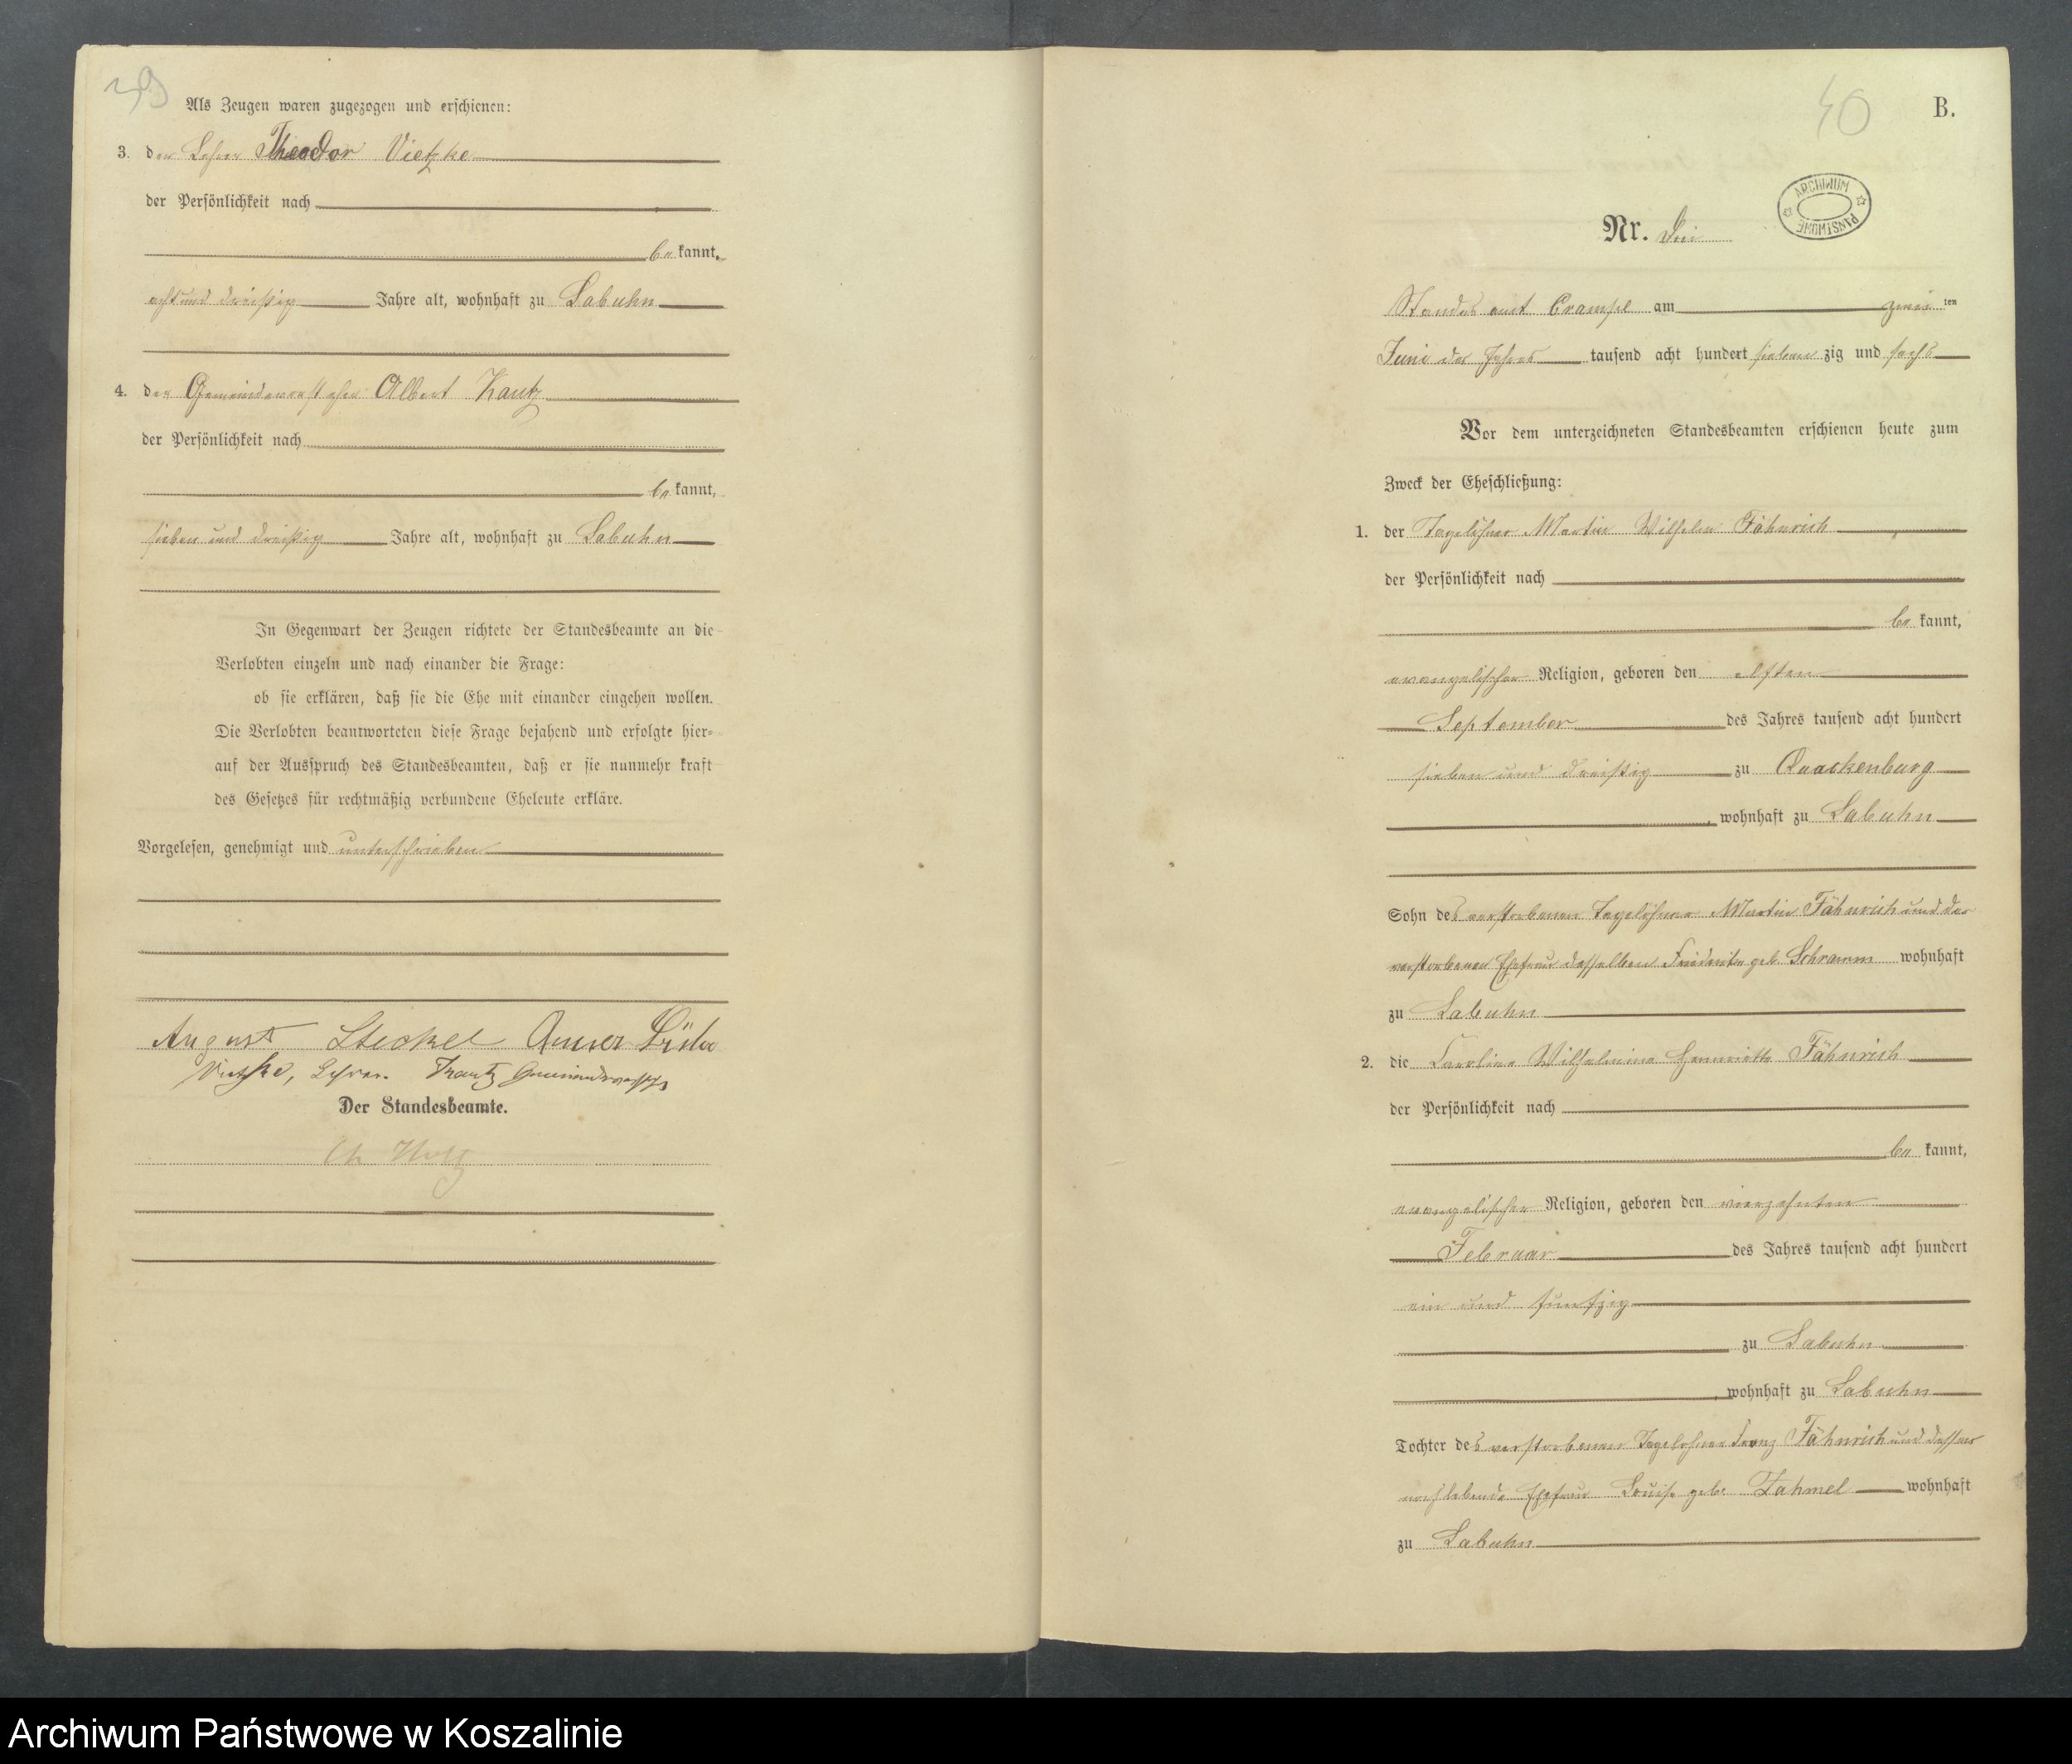 39
Als Zeugen waren zugezogen und erschienen:
3. der Lehrer Theodor Vietzke
der Persönlichkeit nach
bekannt,
acht und dreißig Jahre alt, wohnhaft zu Labuhn
4. der Gemeindevorsteher Albert Kautz
der Persönlichkeit nach
bekannt,
sieben und dreißig Jahre alt, wohnhaft zu Labuhn
In Gegenwart der Zeugen richtete der Standesbeamte an die
Verlobten einzeln und nach einander die Frage:
ob sie erklären, daß sie die Ehe mit einander eingehen wollen.
Die Verlobten beantworteten diese Frage bejahend und erfolgte hier-
auf der Ausspruch des Standesbeamten, daß er sie nunmehr kraft
des Gesetzes für rechtmäßig verbundene Eheleute erkläre.
Vorgelesen, genehmigt und unterschrieben
August Steckel
Vietzke, Lehrer. Kautz Gemeindevorsteher
Der Standesbeamte.
40
B.
ARCHIWUM PAŃSTWOWE
Nr. Drei
Standesamt Crampe am zweiten
Juni des Jahres tausend acht hundert siebenzig und sechs
Vor dem unterzeichneten Standesbeamten erschienen heute zum
Zweck der Eheschließung:
1. der Tagelöhner Martin Wilhelm Fähnrich
der Persönlichkeit nach
bekannt,
evangelischer Religion, geboren den elften
September des Jahres tausend acht hundert
sieben und dreißig zu Quackenburg
, wohnhaft zu Labuhn
Sohn des verstorbenen Tagelöhner Martin Fähnrich und der
verstorbenen Ehefrau desselben Friederike geb. Schramm wohnhaft
zu Labuhn
2. die Caroline Wilhelmine Henriette Fähnrich
der Persönlichkeit nach
bekannt,
evangelischer Religion, geboren den vierzehnten
Februar des Jahres tausend acht hundert
ein und funfzig
zu Labuhn
, wohnhaft zu Labuhn
Tochter des verstorbenen Tagelöhner Franz Fähnrich und dessen
noch lebende Ehefrau Louise geb. Fahmel wohnhaft
zu Labuhn
Archiwum Państwowe w Koszalinie